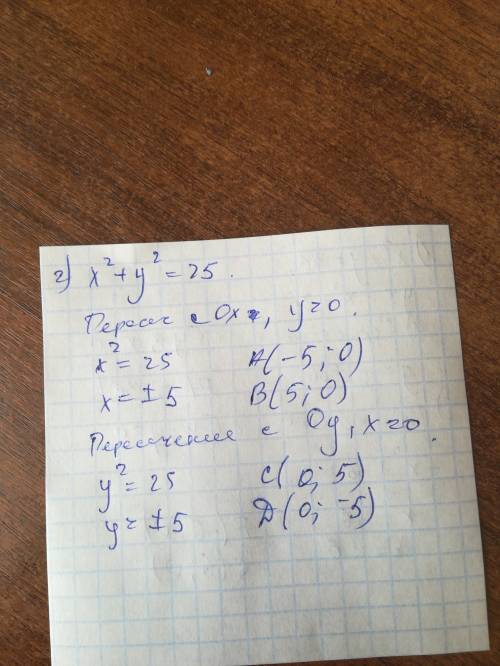 г) x² + y² = 25.
Пересеч с Ox, y=0.
x² = 25 A(-5; 0)
x = ±5 B(5; 0)
Пересечение с Oy, x=0.
y² = 25 C(0; 5)
y = ±5 D(0; -5)